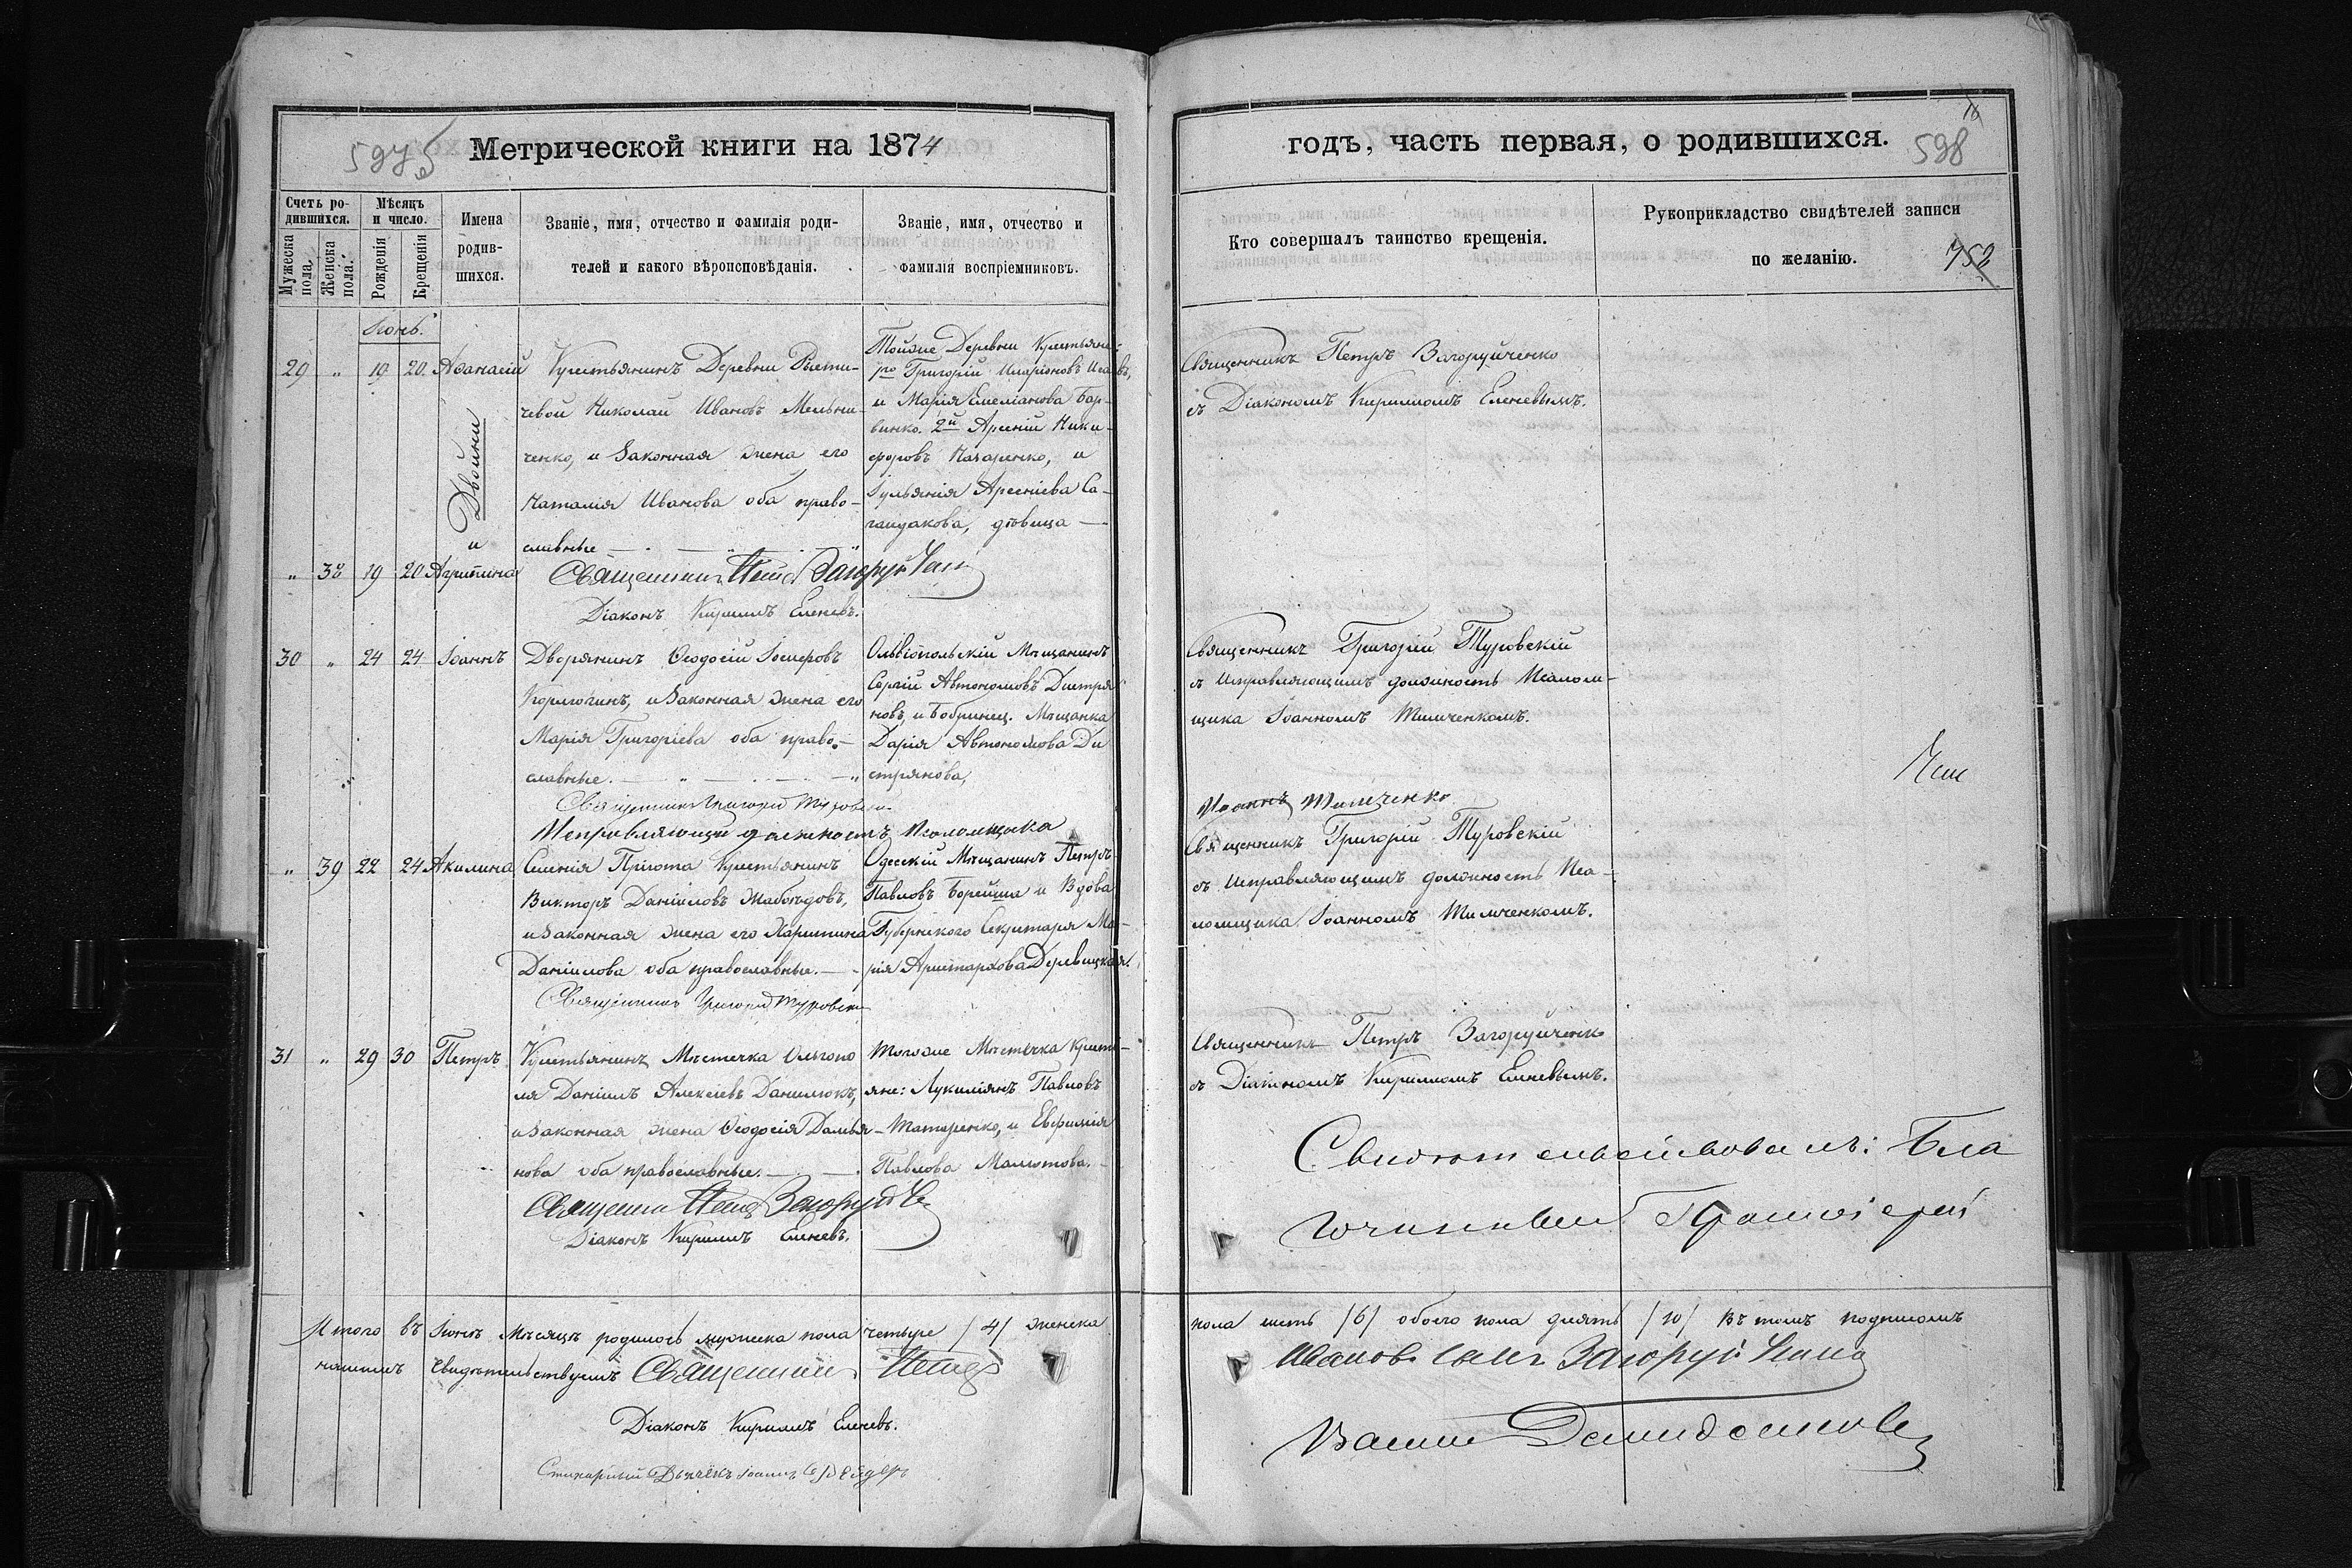 Метрической книги на 1874
годъ, часть первая, о родившихся.
16
598
Счетъ ро-
дившихся.
Мѣсяцъ
и число.
Мужеска
пола.
Женска
пола.
Рожденія
Крещенія
Имена
родив-
шихся.
Званіе, имя, отчество и фамилія роди-
телей и какого вѣроисповѣданія.
Званіе, имя, отчество и
фамилія воспріемниковъ.
Кто совершалъ таинство крещенія.
Рукоприкладство свидѣтелей записи
по желанію.
752
Іюнь.
29 " 19 20 Афанасій
Двойни
и
" 38 19 20 Агрипина
Крестьянинъ Деревни
чевой Николай Ивановъ Мельни-
ченко, и Законная жена его
Наталія Иванова оба право-
славные
Священникъ Петръ Загоруйченко
Діаконъ Кириллъ Еленевъ.
Тойже Деревни Крестьяне:
1го Григорій Иларіоновъ
и Марія Емеліанова Бар-
винко. 2й Арсеній Ники-
форовъ Назаренко, и
Іульянія Арсеніева Са-
гайдакова, дѣвица
Священникъ Петръ Загоруйченко
съ Діакономъ Кирилломъ Еленевымъ.
30 " 24 24 Іоаннъ
Дворянинъ Ѳеодосій
и Законная жена его
Марія Григоріева оба право-
славные.
Священникъ Григорій Туровскій
Исправляющій должность Псаломщика
Ольвіопольскій Мѣщанинъ
Сергій Автономовъ Диетрия
новъ, и Бобринец. Мѣщанка
Дарія Автономова Ди
етрянова,
Священникъ Григорій Туровскій
съ Исправляющимъ должность Псалом-
щика Іоанномъ Тимченкомъ.
Иоаннъ Тимченко
" 39 22 24 Акилина
Селенія Пріюта Крестьянинъ
Викторъ Даніиловъ Жабоѣдовъ,
и Законная жена его Харитина
Даніилова оба православные.
Священникъ Григорій Туровскій
Одесскій Мѣщанинъ Петръ
Павловъ Борейша и Вдова
Губернскаго Секретаря Ма-
рія Аристархова Деревицкая.
Священникъ Григорій Туровскій
съ Исправляющимъ должность Пса-
ломщика Іоанномъ Тимченкомъ.
31 " 29 30 Петръ
Крестьянинъ Мѣстечка Ольгопо
ля Даніилъ Алексѣевъ Данилюкъ,
и Законная жена Ѳеодосія Дамья-
нова оба православные.
Священникъ Петръ Загоруйченко
Діаконъ Кириллъ Еленевъ.
Тогоже Мѣстечка Кресть-
яне: Лукиліянъ Павловъ
Татаренко, и Евфимія
Павлова Малютова.
Священникъ Петръ Загоруйченко
съ Діакономъ Кирилломъ Еленевымъ.
Свидѣтельствовалъ: Бла
гочинный Протоіерей
Итого въ Іюнѣ мѣсяцѣ родилось мужеска пола четыре /4/ женска
пола шесть /6/ обоего пола десять /10/ Въ томъ подписомъ
нашимъ свидѣтельствуемъ Священникъ Петръ
Ивановъ сынъ Загоруйченко
Діаконъ Кириллъ Еленевъ.